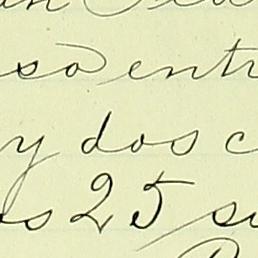 so entr
y dos c
es 25 su